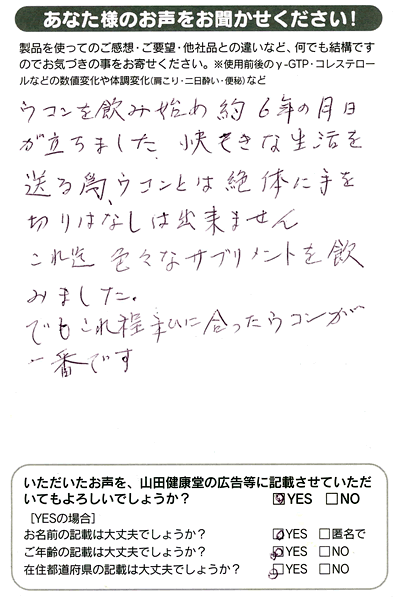 あなた様のお声をお聞かせください！
製品を使ってのご感想・ご要望・他社品との違いなど、何でも結構です
のでお気づきの事をお寄せください。※使用前後のγ-GTP・コレステロ
ールなどの数値変化や体調変化(肩こり・二日酔い・便秘)など
ウコンを飲み始め 約 6年の月日
が立ちました、快てきな生活を
送る為、ウコンとは絶体に手を
切りはなしは出来ません
これ迄 色々なサプリメントを飲
みました。
でもこれ程 私に合ったウコンが
一番です
いただいたお声を、山田健康堂の広告等に記載させていただ
いてもよろしいでしょうか？ YES NO
［YESの場合］
お名前の記載は大丈夫でしょうか？ YES 匿名で
ご年齢の記載は大丈夫でしょうか？ YES NO
在住都道府県の記載は大丈夫でしょうか？ YES NO